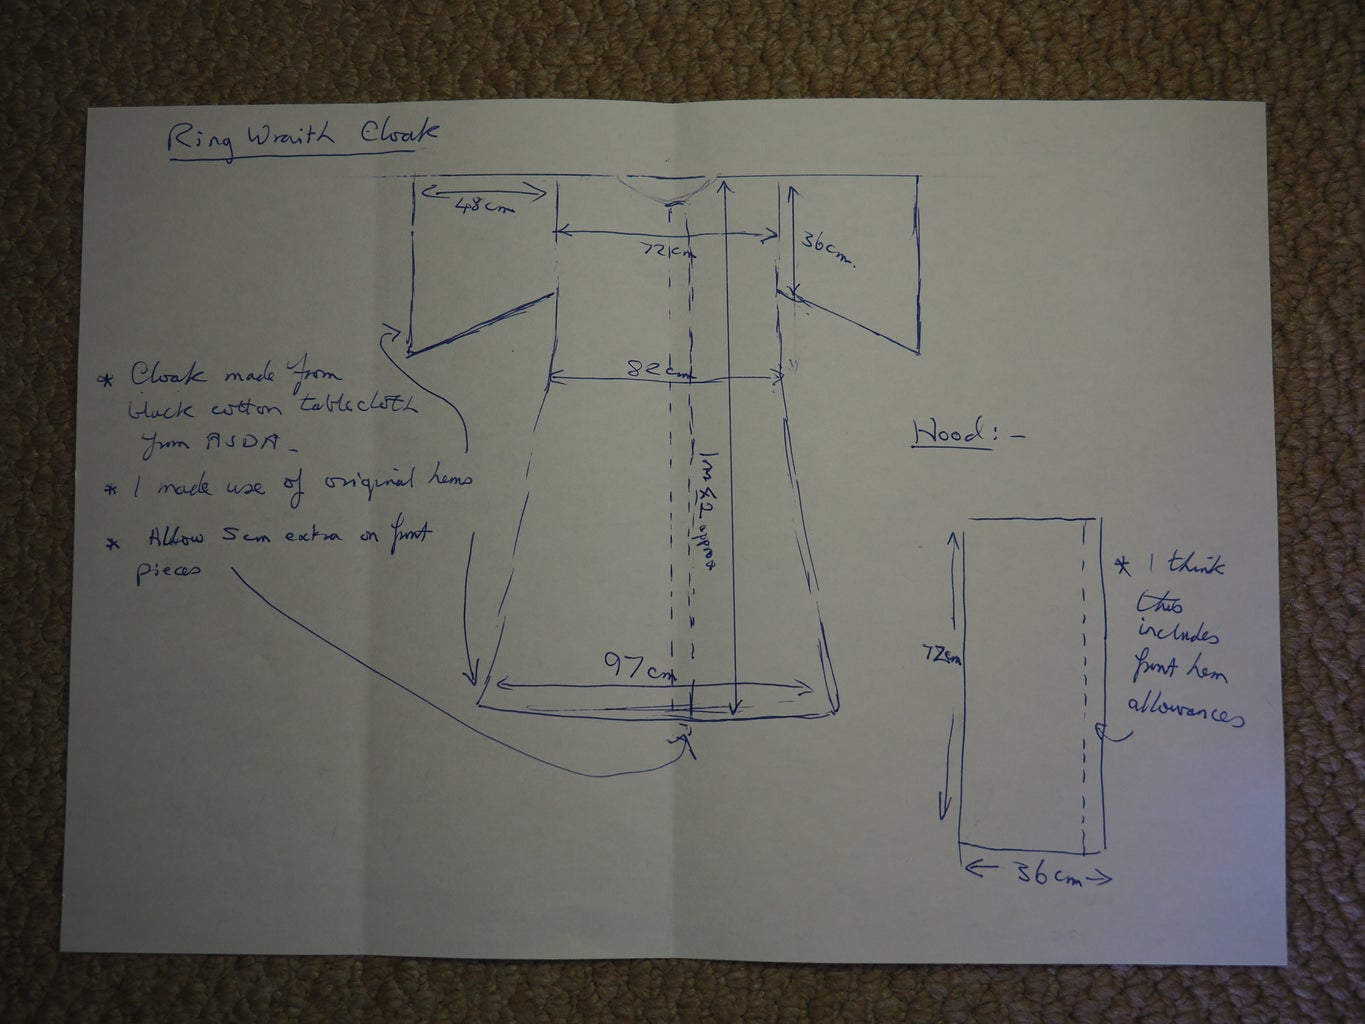 Ring Wraith Cloak
48cm
72cm
36cm.
82cm
* Cloak made from
black cotton tablecloth
from ASDA -
* I made use of original hems
* Allow 5cm extra on front
pieces
approx
97cm
Hood:-
72cm
* I think
this
includes
front hem
allowances
36cm